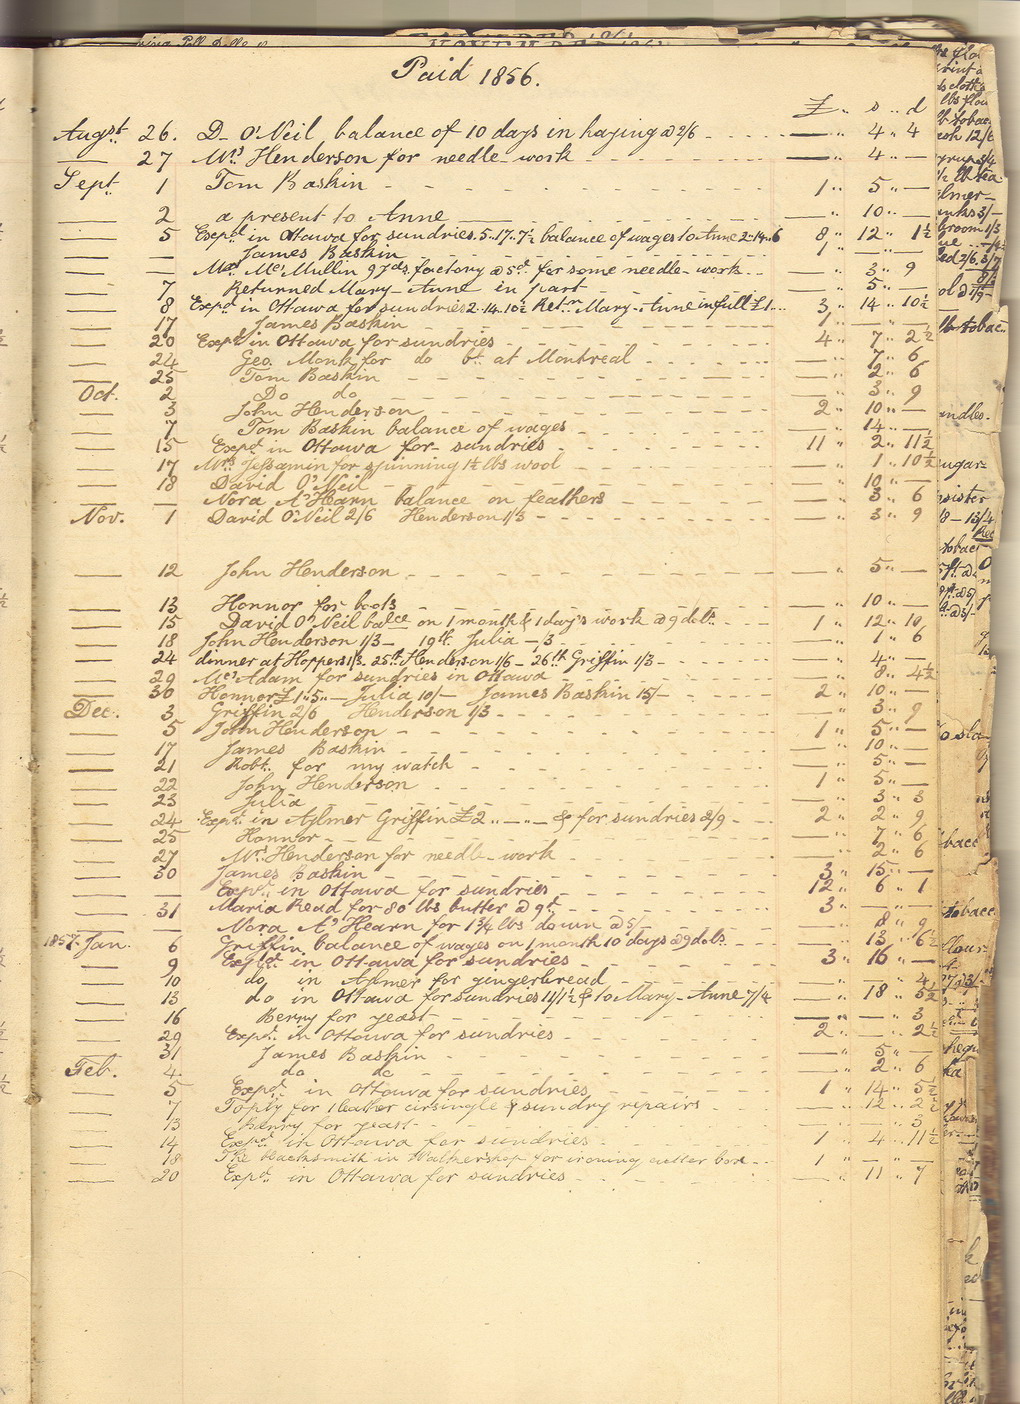 Paid 1856.
£ " s " d
Augst 26. D- O'Neil balance of 10 days in haying @ 2/6 — " 4 " 4
— 27 Mrs Henderson for needle-work — " 4 " —
Sept 1 Tom Baskin 1 " 5 " —
— 2 a present to Anne — " 10 " —
— 5 Expd in Ottawa for sundries. 5..17..7½ balance of wages to Anne 2..14..6 8 " 12 " 1½
— — James Baskin 1 " — " —
— — Mrs McMullin 9 yds. factory @ 5d. for some needle-work — " 3 " 9
— 7 Returned Mary-Anne in part — " 5 " —
— 8 Expd in Ottawa for sundries 2..14..10½ Retn Mary-Anne in full £1 3 " 14 " 10½
— 17 James Baskin 1 " — " —
— 20 Expd in Ottawa for sundries 4 " 7 " 2½
— 24 Geo. Monk for do bt. at Montreal — " 7 " 6
— 25 Tom Baskin — " 2 " 6
Oct. 2 Do do — " 3 " 9
— 3 John Henderson 2 " 10 " —
— 7 Tom Baskin balance of wages — " 14 " —
— 15 Expd in Ottawa for sundries 11 " 2 " 11½
— 17 Mrs Jessamin for spinning 1½ lbs wool — " 1 " 10½
— 18 David O'Neil — " 10 " —
— — Nora A'Hearn balance on feathers — " 3 " 6
Nov. 1 David O'Neil 2/6 Henderson 1/3 — " 3 " 9
— 12 John Henderson — " 5 " —
— 13 Honnor for boots — " 10 " —
— 15 David O'Neil balce on 1 month & 1 day's work @ 9 dols. 1 " 12 " 10
— 18 John Henderson 1/3 — 19th Julia — /3 — " 1 " 6
— 24 dinner at Hoppers 1/3. 25th Henderson 1/6 — 26th Griffin 1/3 — " 4 " —
— 29 McAdam for sundries in Ottawa — " 8 " 4½
— 30 Honnor £1"5"— Julia 10/— James Baskin 15/— 2 " 10 " —
Dec. 3 Griffin 2/6 Henderson 1/3 — " 3 " 9
— 5 John Henderson 1 " 5 " —
— 17 James Baskin — " 10 " —
— 21 Robt. for my watch — " 5 " —
— 22 John Henderson 1 " 5 " —
— 23 Julia — " 3 " 3
— 24 Expd. in Aylmer Griffin £2 " — " — & for sundries 2/9 2 " 2 " 9
— 25 Honnor — " 7 " 6
— 27 Mrs. Henderson for needle-work — " 2 " 6
— 30 James Baskin 3 " 15 " —
— Expd. in Ottawa for sundries 12 " 6 " 1
— 31 Maria Read for 80 lbs butter @ 9d 3 " — " —
— Nora A'Hearn for 1¾ lbs down @ 5/ — " 8 " 9
1857. Jan. 6 Griffin balance of wages on 1 month 10 days @ 9 dols. — " 13 " 6½
— 9 Expd. in Ottawa for sundries 3 " 16 " —
— 10 do in Aylmer for gingerbread — " — " 4
— 13 do in Ottawa for sundries 11/1½ & to Mary-Anne 7/4 — " 18 " 5½
— 16 Berry for yeast — " — " 3
— 29 Expd. in Ottawa for sundries 2 " — " 2½
— 31 James Baskin — " 5 " —
Feb. 4 do do — " 2 " 6
— 5 Expd in Ottawa for sundries 1 " 14 " 5½
— 7 for 1 leather cirsingle & sundry repairs — " 12 " 2½
— 13 Berry for yeast — " — " 3
— 14 Expd in Ottawa for sundries 1 " 4 " 11½
— 18 The blacksmith in for ironing cutter box 1 " — " —
— 20 Expd. in Ottawa for sundries — " 11 " 7